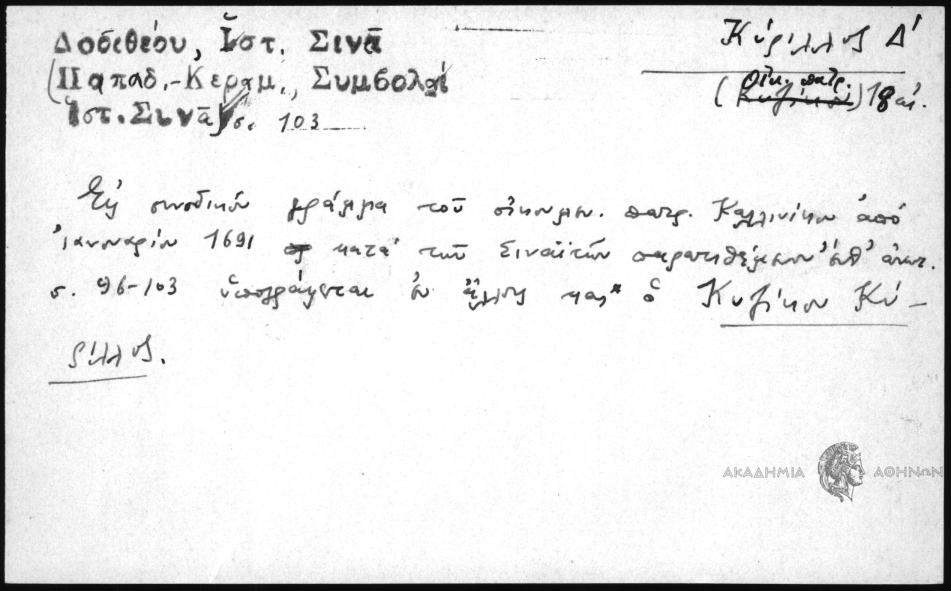 Δοσιθέου, Ἱστ. Σινᾶ
(Παπαδ.-Κεραμ., Συμβολαὶ
Ἱστ. Σινᾶ) σ. 103
Κύριλλος Δ΄
(Οἰκ. πατρ.) 18 αἰ.
Εἰς συνοδικὸν γράμμα τοῦ οἰκουμεν. πατρ. Καλλινίκου ἀπὸ
ἰανουαρίου 1691 κατὰ τῶν Σιναϊτῶν παρατιθέμενον ἐνθ' ἀνωτ.
σ. 96-103 ὑπογράφεται ἐν ἄλλοις καὶ ὁ Κυζίκου Κύ-
ριλλος.
ΑΚΑΔΗΜΙΑ ΑΘΗΝΩΝ